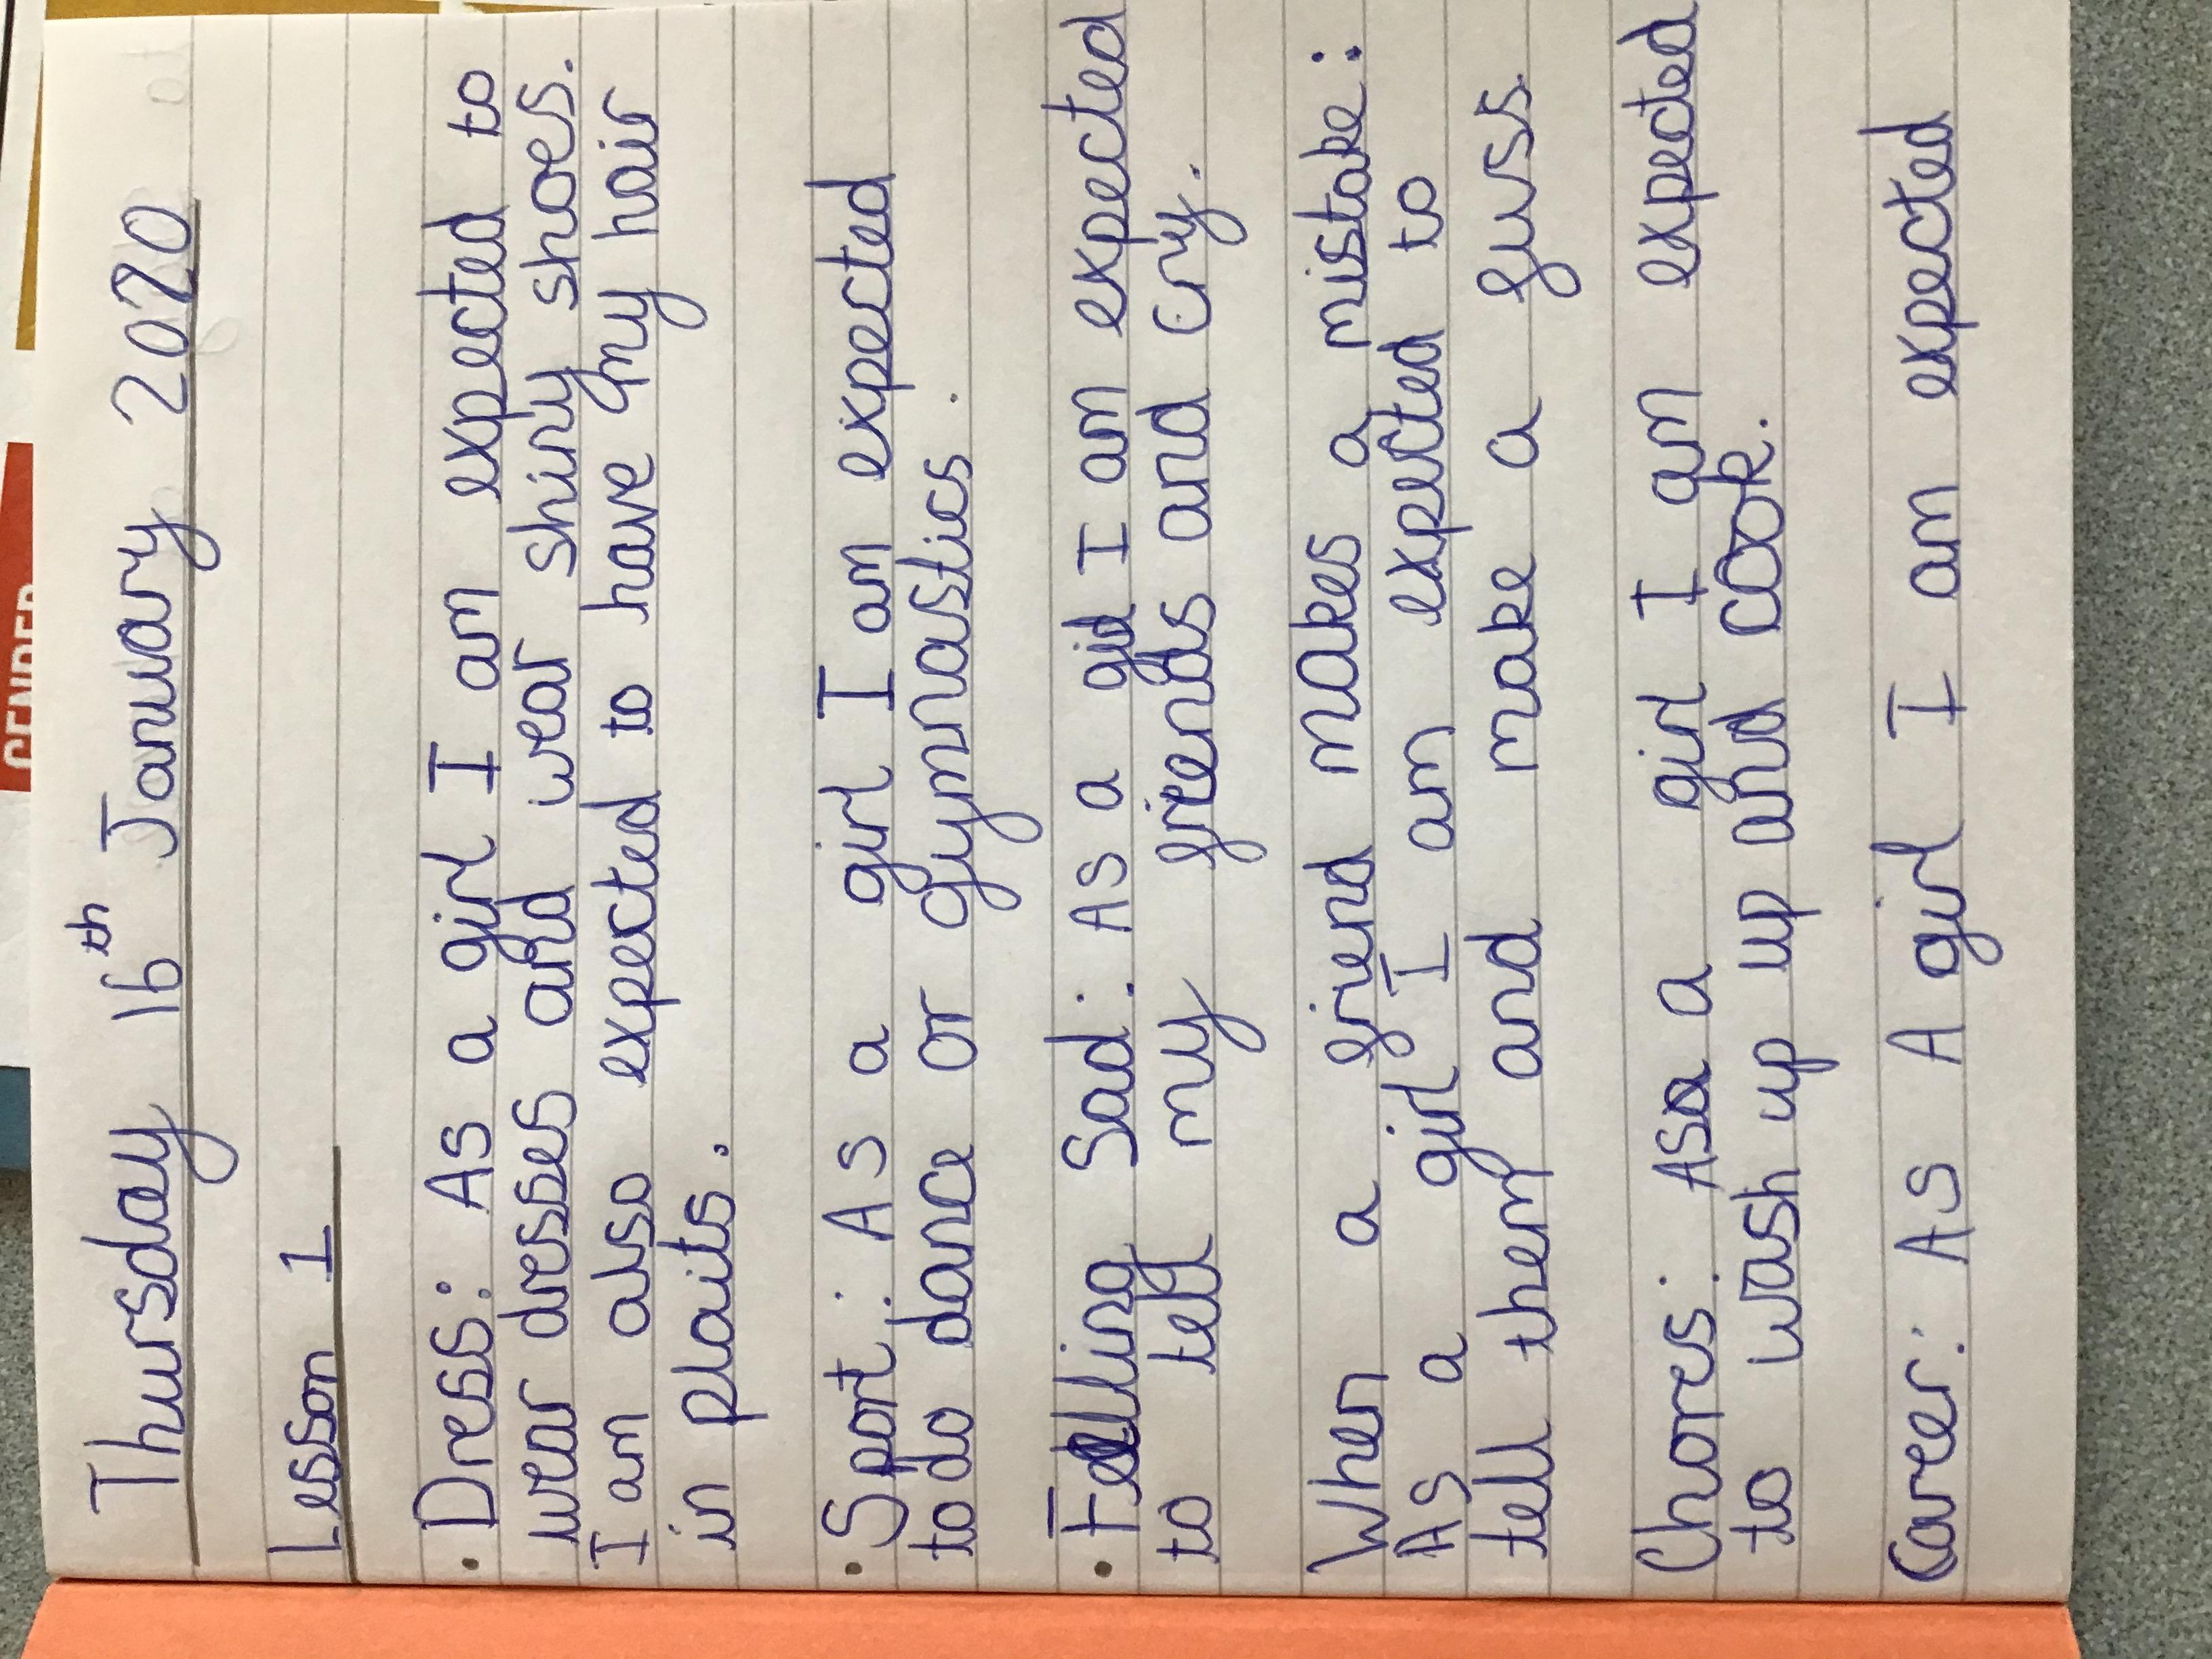 GENDER
Thursday 16th January 2020
Lesson 1
• Dress: As a girl I am expected to
wear dresses and wear shiny shoes.
I am also expected to have my hair
in plaits.
• Sport: As a girl I am expected
to do dance or gymnastics.
• Felling Sad: As a girl I am expected
to tell my friends and cry.
When a friend makes a mistake:
As a girl I am expected to
tell them and make a fuss.
Chores: As a a girl I am expected
to wash up up and cook.
Career: As A girl I am expected